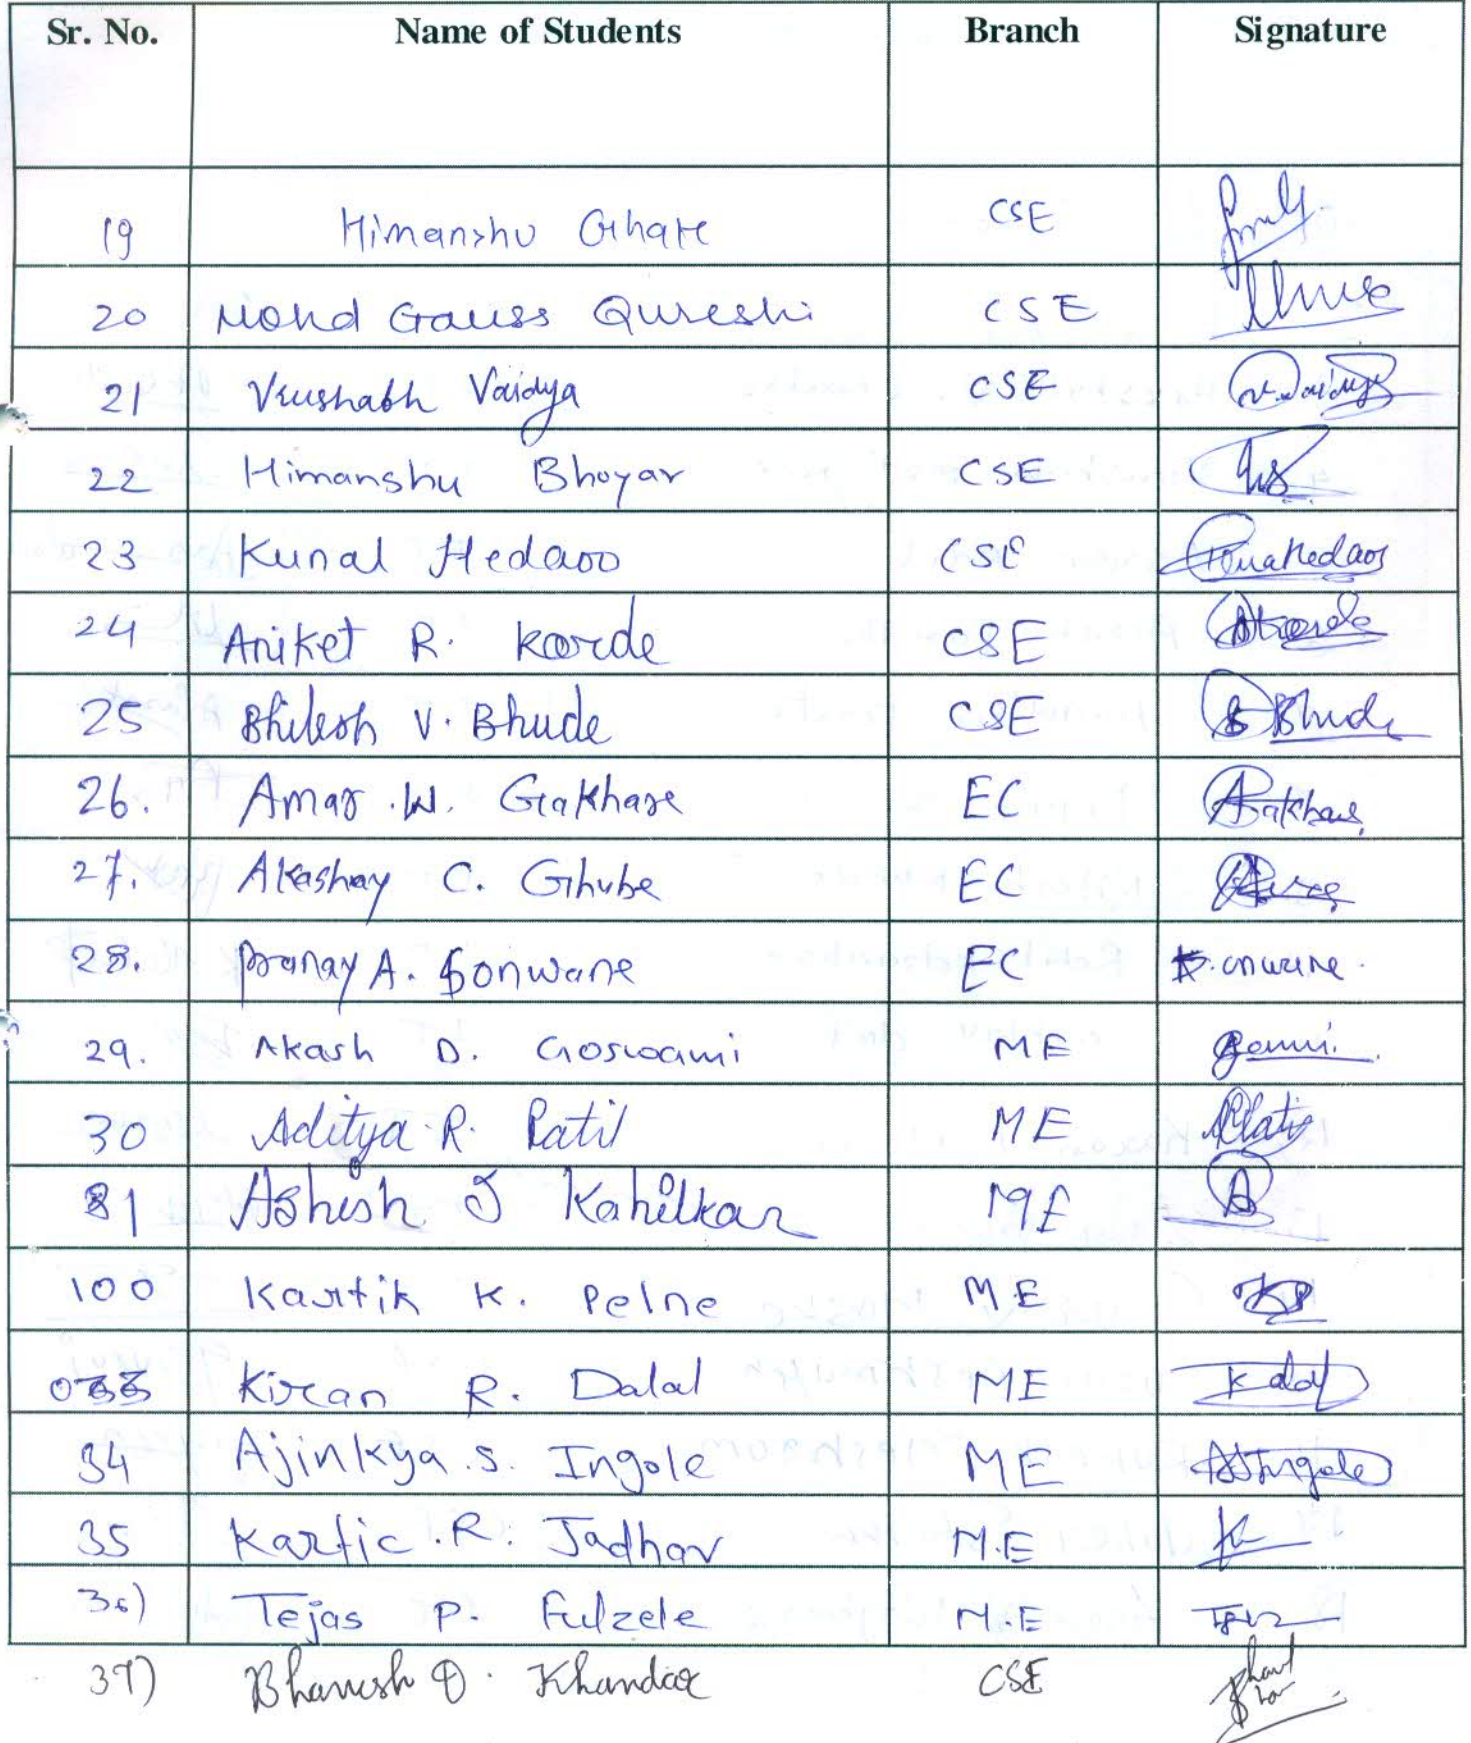 Sr. No. Name of Students Branch Signature
19 Himanshu Ghate CSE
20 Mohd Gauss Qureshi CSE
21 Vrushabh Vaidya CSE V.Vaidya
22 Himanshu Bhoyar CSE
23 Kunal Hedaoo CSE
24 Aniket R. Korde CSE
25 Bhilesh V. Bhude CSE Bhude
26. Amar .W. Gakhare EC Gakhare
27. Akashay C. Ghube EC
28. Pranay A. Sonwane EC
29. Akash D. Goswami ME
30 Aditya R. Patil ME
31 Ashish J Kahilkar ME A
100 Kartik K. Pelne M.E KP
Kiran R. Dalal ME
34 Ajinkya .S. Ingole ME ASIngole
35 Kartic .R. Jadhav M.E
36) Tejas P. Fulzele M.E
37) D. CSE